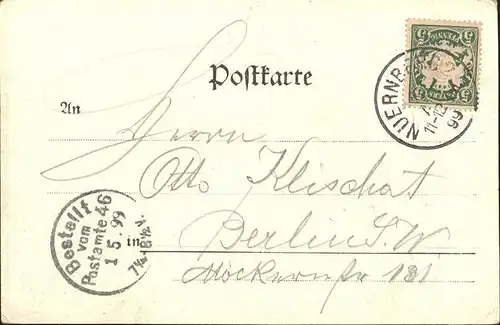 Postkarte
An
Herrn
Otto Klischat
in Berlin S.W
Möckernstr 131
NUERNB
11-12
99
Bestellt
vom
Postamte 46
1 5.99
7¼-8½V.
5
5